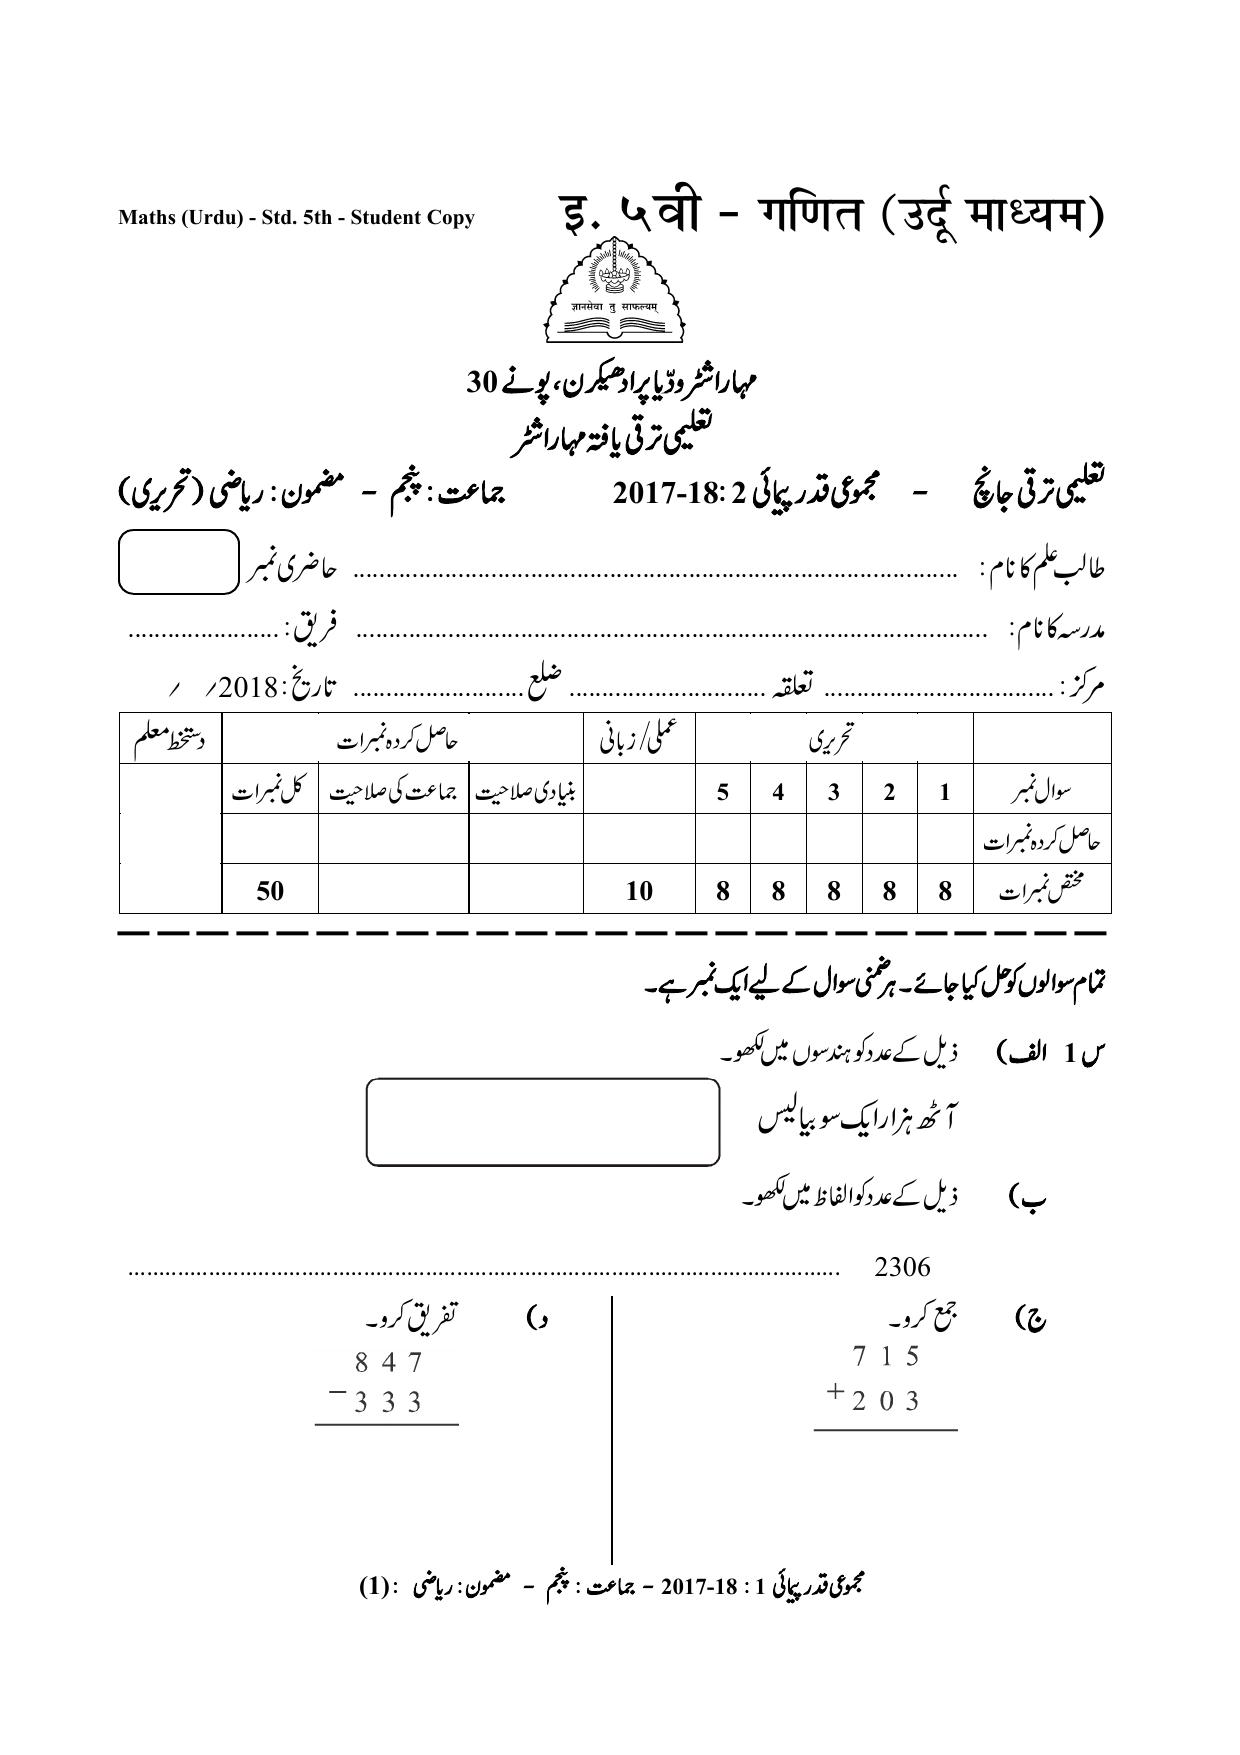 Maths (Urdu) - Std. 5th - Student Copy
इ. ५वी - गणित (उर्दू माध्यम)
ज्ञानसेवा तु साफल्यम्
مہاراشٹر ودّیا پرادھیکرن، پونے 30
تعلیمی ترقی یافتہ مہاراشٹر
تعلیمی ترقی جانچ - مجموعی قدر پیمائی 2 :2017-18 جماعت : پنجم - مضمون : ریاضی (تحریری)
طالب علم کا نام : ............................................................ حاضری نمبر
مدرسہ کا نام: ............................................................ فریق : .......................
مرکز : ................................... تعلقہ .............................. ضلع .......................... تاریخ : / /2018
تحریری عملی/ زبانی حاصل کردہ نمبرات دستخط معلم
سوال نمبر 1 2 3 4 5 بنیادی صلاحیت جماعت کی صلاحیت کل نمبرات
حاصل کردہ نمبرات
مختص نمبرات 8 8 8 8 8 10 50
تمام سوالوں کو حل کیا جائے۔ ہر ضمنی سوال کے لیے ایک نمبر ہے۔
س 1 الف) ذیل کے عدد کو ہندسوں میں لکھو۔
آٹھ ہزار ایک سو بیالیس
ب) ذیل کے عدد کو الفاظ میں لکھو۔
2306 ............................................................
ج) جمع کرو۔
7 1 5
+ 2 0 3
د) تفریق کرو۔
8 4 7
− 3 3 3
مجموعی قدر پیمائی 1 : 2017-18 - جماعت : پنجم - مضمون : ریاضی : (1)